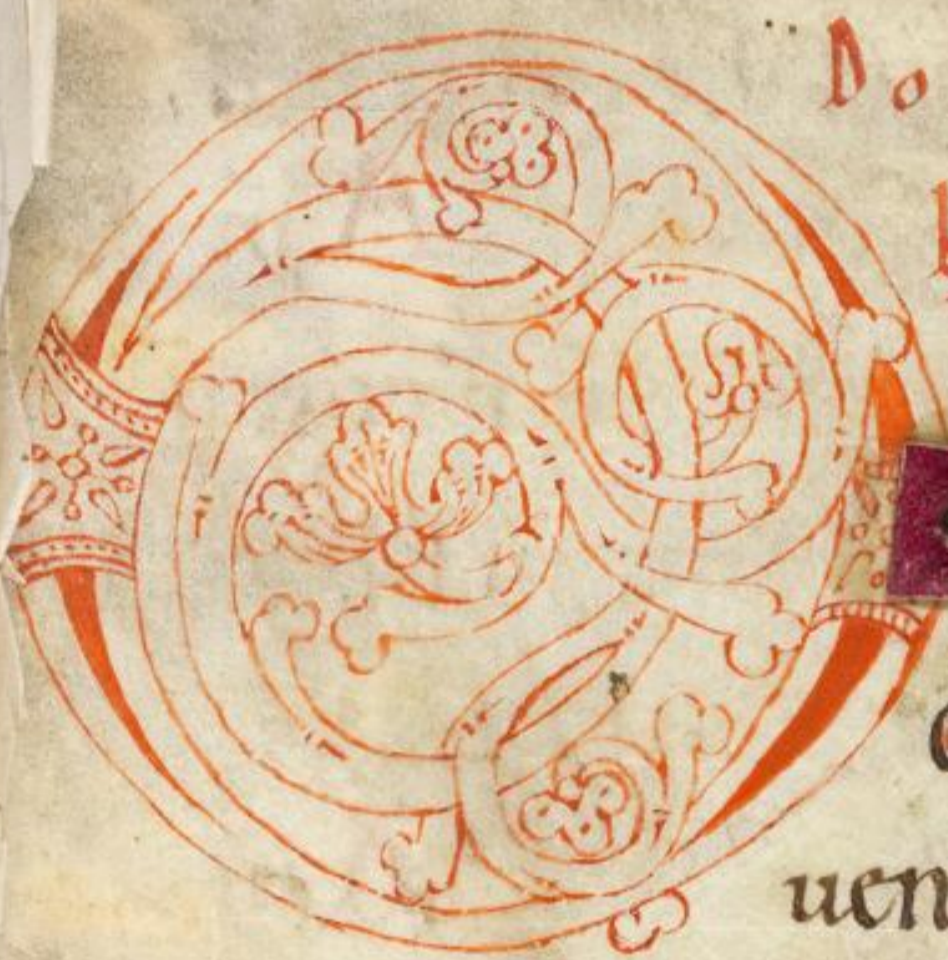 O
Do
uen